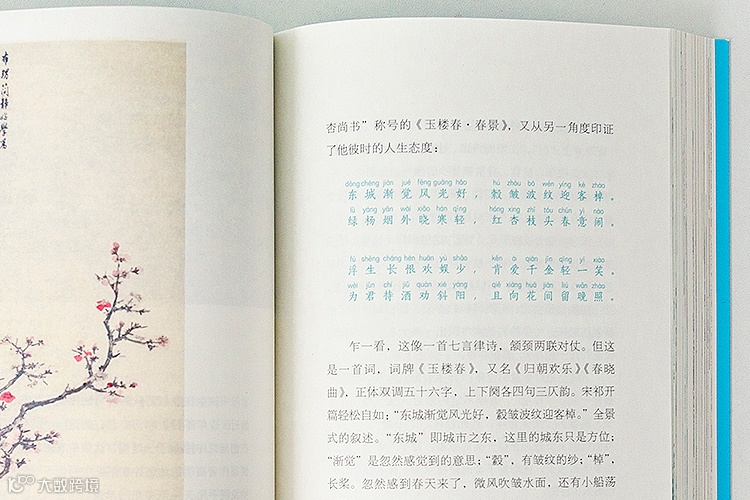 杏尚书”称号的《玉楼春·春景》，又从另一角度印证
了他彼时的人生态度：
dōng chéng jiàn jué fēng guāng hǎo hú zhòu bō wén yíng kè zhào
东城渐觉风光好，縠皱波纹迎客棹。
lǜ yáng yān wài xiǎo hán qīng hóng xìng zhī tóu chūn yì nào
绿杨烟外晓寒轻，红杏枝头春意闹。
fú shēng cháng hèn huān yú shǎo kěn ài qiān jīn qīng yí xiào
浮生长恨欢娱少，肯爱千金轻一笑。
wèi jūn chí jiǔ quàn xié yáng qiě xiàng huā jiān liú wǎn zhào
为君持酒劝斜阳，且向花间留晚照。
乍一看，这像一首七言律诗，颔颈两联对仗。但这
是一首词，词牌《玉楼春》，又名《归朝欢乐》《春晓
曲》，正体双调五十六字，上下阕各四句三仄韵。宋祁开
篇轻松自如：“东城渐觉风光好，縠皱波纹迎客棹。”全景
式的叙述。“东城”即城市之东，这里的城东只是方位；
“渐觉”是忽然感觉到的意思；“縠”，有皱纹的纱；“棹”，
长桨。忽然感到春天来了，微风吹皱水面，还有小船荡
大数跨境